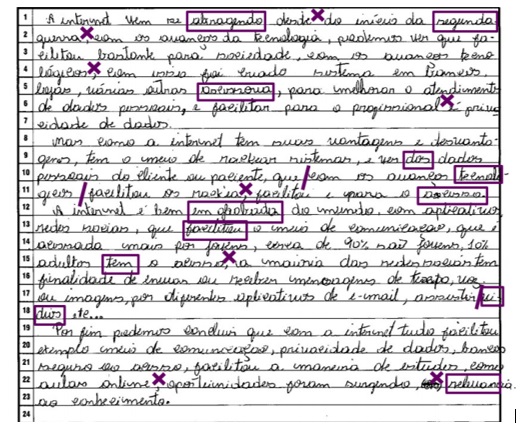 1 A internet vem se abrangendo desde do início da segunda
2 guerra, com os avanços da tecnologia, podemos ver que fa-
3 cilitou bastante para sociedade, com os avanços tecno-
4 lógicos, com isso foi criado sistema em bancos,
5 lojas, várias outras acessoria, para melhorar o atendimento
6 de dados pessoais, e facilitar para o profissional e priva-
7 cidade de dados.
8 Mas como a internet tem suas vantagens e desvanta-
9 gens, tem o meio de rastrear sistemas, e ver dos dados
10 pessoais do cliente ou paciente, que com os avanços tecnolo-
11 gicos facilitou os facilitou e para o acesso
12 A internet é bem do mundo, com aplicativos,
13 redes sociais, que facilitou o meio de comunicação, que é
14 acessada mais por jovens, cerca de 90% são jovens, 10%
15 adultos tem o acesso, a maioria das redes sociais tem
16 finalidade de enviar ou receber mensagens de texto, voz
17 ou imagens, por diferentes aplicativos de e-mail, assistir vi-
18 dios etc...
19 Por fim podemos concluir que com a internet tudo facilitou
20 exemplo meio de comunicação, privacidade de dados, bancos
21 seguro ao acesso, facilitou a maneira de estudos, como
22 aulas online, oportunidades foram surgindo,
23 ao conhecimento.
24